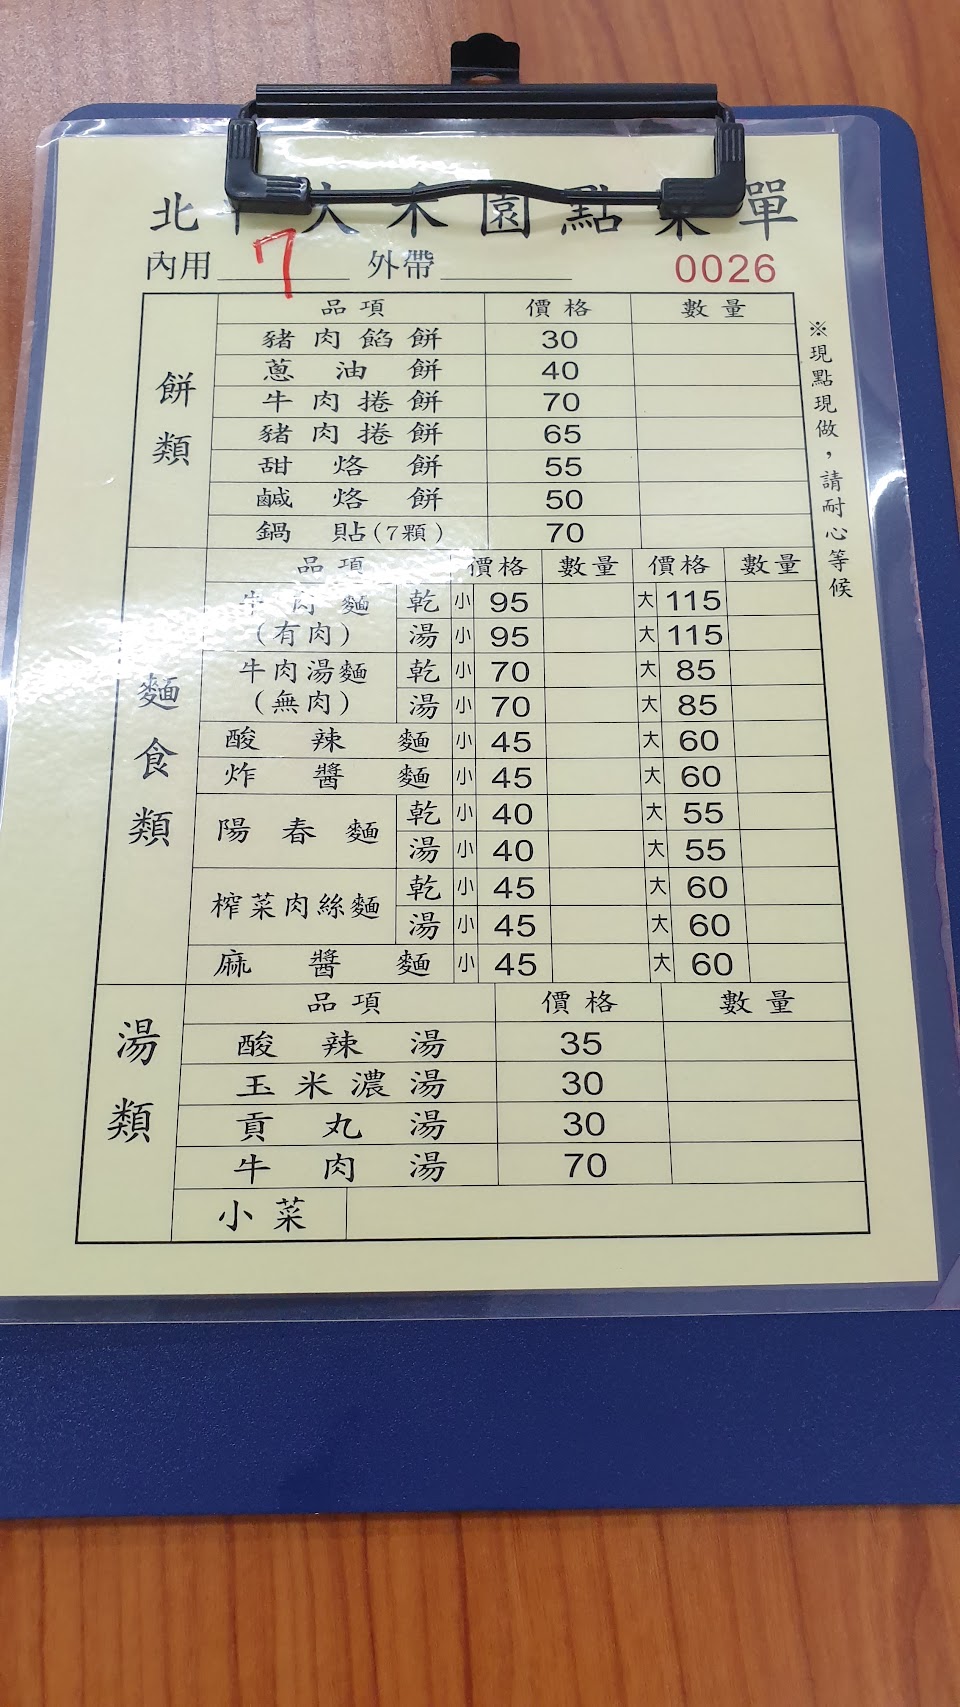 北 大禾園點菜單
內用 7 外帶 0026
※現點現做，請耐心等候
餅類
品項 價格 數量
豬肉餡餅 30
蔥油餅 40
牛肉捲餅 70
豬肉捲餅 65
甜烙餅 55
鹹烙餅 50
鍋貼(7顆) 70
麵食類
品項 價格 數量 價格 數量
牛肉麵(有肉) 乾 小 95 大 115
湯 小 95 大 115
牛肉湯麵(無肉) 乾 小 70 大 85
湯 小 70 大 85
酸辣麵 小 45 大 60
炸醬麵 小 45 大 60
陽春麵 乾 小 40 大 55
湯 小 40 大 55
榨菜肉絲麵 乾 小 45 大 60
湯 小 45 大 60
麻醬麵 小 45 大 60
湯類
品項 價格 數量
酸辣湯 35
玉米濃湯 30
貢丸湯 30
牛肉湯 70
小菜